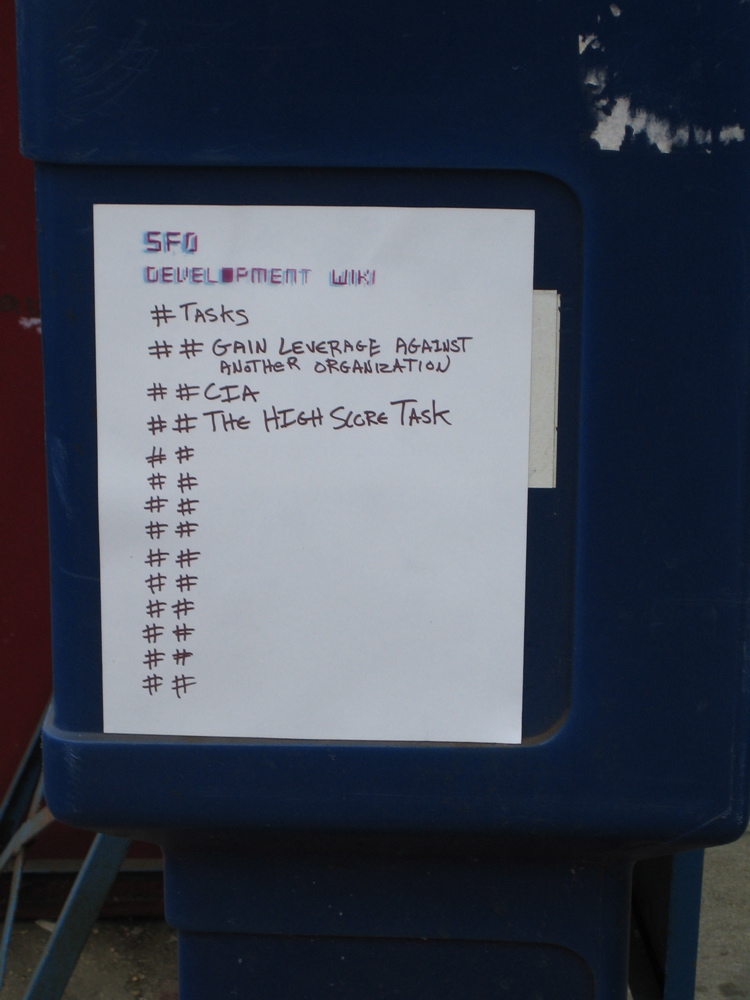 SF0
DEVELOPMENT WIKI
# TASKS
# # GAIN LEVERAGE AGAINST
ANOTHER ORGANIZATION
# # CIA
# # THE HIGH SCORE TASK
# #
# #
# #
# #
# #
# #
# #
# #
# #
# #